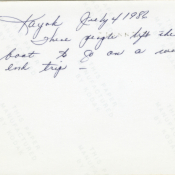 Kayak July 4 1986
These people left the
boat to go on a week
end trip —